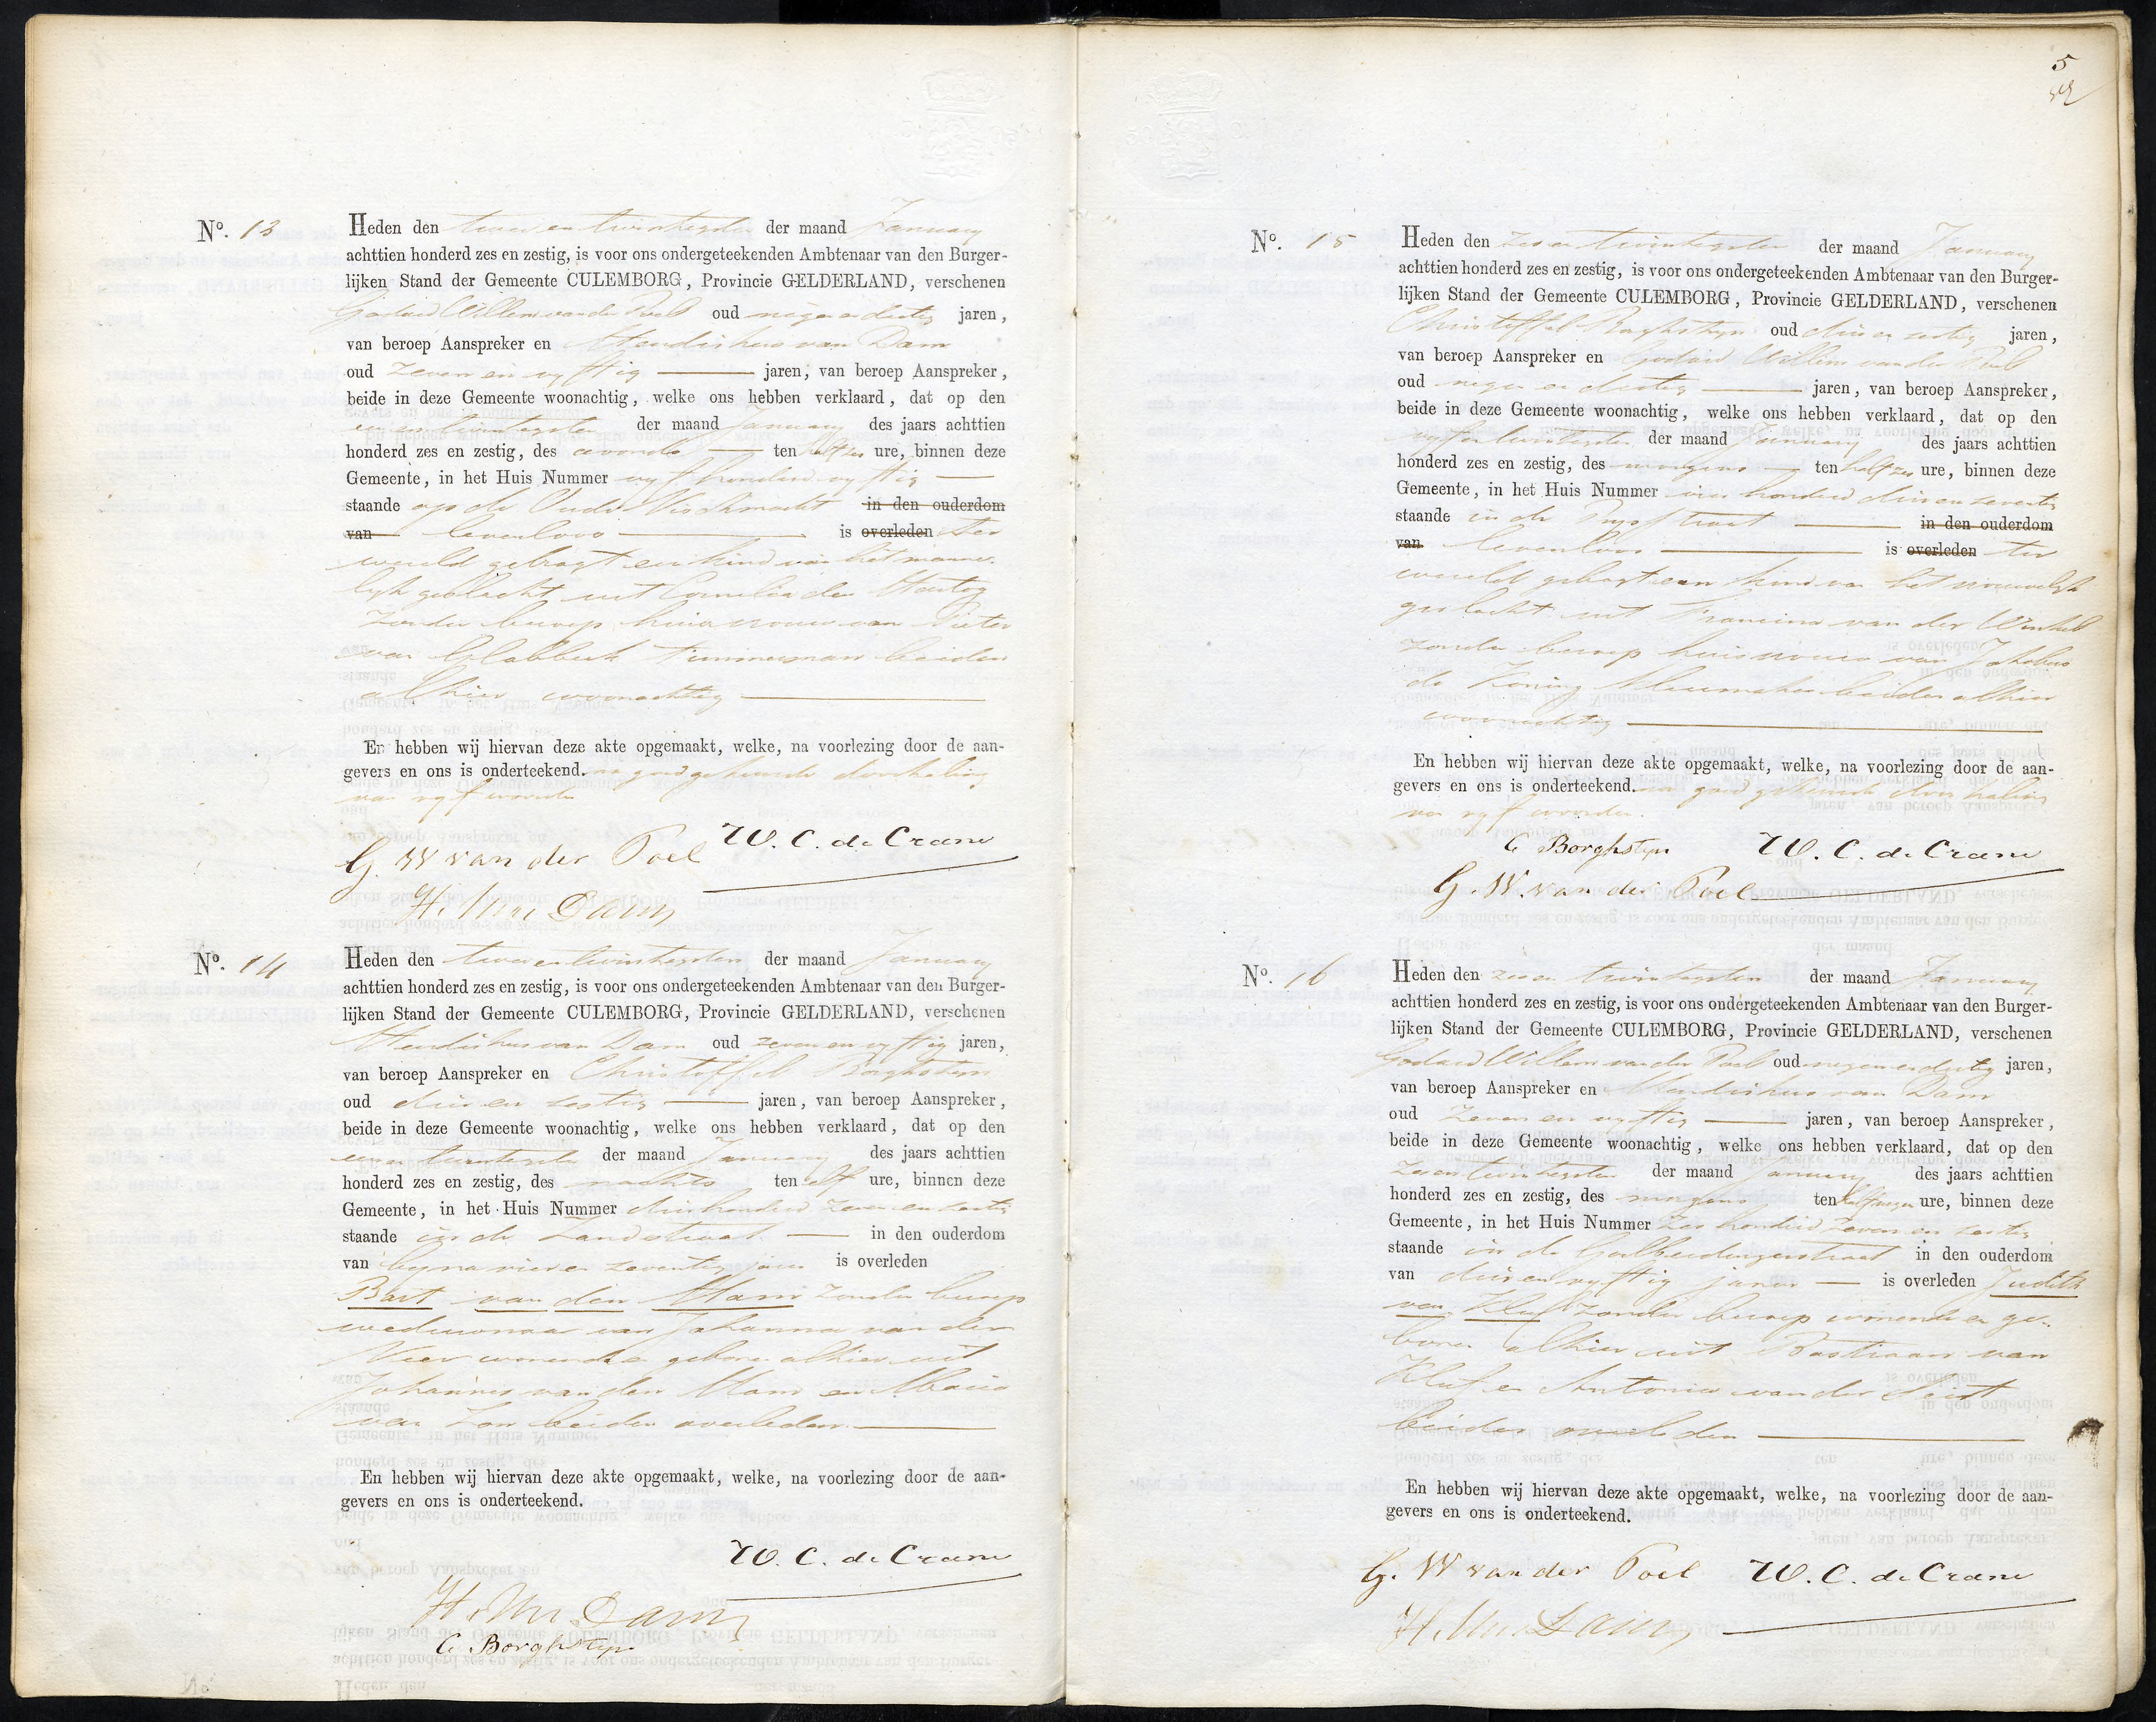 No. 13
Heden den twee en twintigsten der maand January
achttien honderd zes en zestig, is voor ons ondergeteekenden Ambtenaar van den Burger-
lijken Stand der Gemeente CULEMBORG, Provincie GELDERLAND, verschenen
Godard Willem van der Poel oud negen en dertig jaren,
van beroep Aanspreker en Hendrikus van Dam
oud zeven en vyftig jaren, van beroep Aanspreker,
beide in deze Gemeente woonachtig, welke ons hebben verklaard, dat op den
een en twintigsten der maand January des jaars achttien
honderd zes en zestig, des avonds ten half zes ure, binnen deze
Gemeente, in het Huis Nummer vyf honderd vyftig
staande op de Oude Vischmarkt in den ouderdom
van levenloos is overleden ter
wereld gebragt een kind van het manne-
lyk geslacht uit Cornelia den Hartog
zonder beroep huisvrouw van Pieter
van Blabbeek timmerman beiden
alhier woonachtig
En hebben wij hiervan deze akte opgemaakt, welke, na voorlezing door de aan-
gevers en ons is onderteekend. na goedgekeurde doorhaling
van vyf woorden
W. C. de Crane
G. W van der Poel
H. van Dam
No. 14
Heden den twee en twintigsten der maand January
achttien honderd zes en zestig, is voor ons ondergeteekenden Ambtenaar van den Burger-
lijken Stand der Gemeente CULEMBORG, Provincie GELDERLAND, verschenen
Hendrikus van Dam oud zeven en vyftig jaren,
van beroep Aanspreker en Christoffel Borghstyn
oud drie en zestig jaren, van beroep Aanspreker,
beide in deze Gemeente woonachtig, welke ons hebben verklaard, dat op den
een en twintigsten der maand January des jaars achttien
honderd zes en zestig, des nachts ten elf ure, binnen deze
Gemeente, in het Huis Nummer drie honderd zeven en zestig
staande in de Zandstraat in den ouderdom
van byna vier en zeventig jaren is overleden
Bart van den Ham zonder beroep
weduwnaar van Johanna van der
Veer wonende en geboren alhier uit
Johannes van den Ham en Maria
van Zon beiden overleden
En hebben wij hiervan deze akte opgemaakt, welke, na voorlezing door de aan-
gevers en ons is onderteekend.
W. C. de Crane
H. van Dam
C Borghstyn
5
No. 15
Heden den zes en twintigsten der maand January
achttien honderd zes en zestig, is voor ons ondergeteekenden Ambtenaar van den Burger-
lijken Stand der Gemeente CULEMBORG, Provincie GELDERLAND, verschenen
Christoffel Borghstyn oud drie en zestig jaren,
van beroep Aanspreker en Godard Willem van der Poel
oud negen en dertig jaren, van beroep Aanspreker,
beide in deze Gemeente woonachtig, welke ons hebben verklaard, dat op den
vyf en twintigsten der maand January des jaars achttien
honderd zes en zestig, des morgens ten half zes ure, binnen deze
Gemeente, in het Huis Nummer honderd drie en zeventig
staande in de straat in den ouderdom
van levenloos is overleden ter
wereld gebragt een kind van het vrouwelyk
geslacht uit Francina van der Winkel
zonder beroep huisvrouw van Jakobus
de Koning beiden alhier
woonachtig
En hebben wij hiervan deze akte opgemaakt, welke, na voorlezing door de aan-
gevers en ons is onderteekend. na goedgekeurde doorhaling
van vyf woorden.
C Borghstyn W. C. de Crane
G. W. van der Poel
No. 16
Heden den zes en twintigsten der maand January
achttien honderd zes en zestig, is voor ons ondergeteekenden Ambtenaar van den Burger-
lijken Stand der Gemeente CULEMBORG, Provincie GELDERLAND, verschenen
Godard Willem van der Poel oud negen en dertig jaren,
van beroep Aanspreker en Hendrikus van Dam
oud zeven en vyftig jaren, van beroep Aanspreker,
beide in deze Gemeente woonachtig, welke ons hebben verklaard, dat op den
zes en twintigsten der maand January des jaars achttien
honderd zes en zestig, des morgens ten half ure, binnen deze
Gemeente, in het Huis Nummer zes honderd zeven en zestig
staande in de Goilberdingerstraat in den ouderdom
van drie en vyftig jaren is overleden Judith
van Kluif zonder beroep wonende en ge-
boren alhier uit Bastiaan van
Kluif en Antonia van der Leist
beiden overleden
En hebben wij hiervan deze akte opgemaakt, welke, na voorlezing door de aan-
gevers en ons is onderteekend.
G. W van der Poel W. C. de Crane
H. van Dam